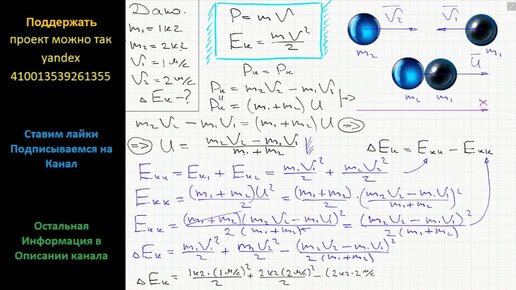 Поддержать
проект можно так
yandex
410013539261355
Ставим лайки
Подписываемся на
Канал
Остальная
Информация в
Описании канала
Дано:
m₁ = 1кг
m₂ = 2кг
V₁ = 1м/с
V₂ = 2м/с
ΔEк - ?
P = mV
Eк = mV²/2
Pн = Pк
Pн = m₂V₂ - m₁V₁
Pк = (m₁+m₂)U
=>
m₂V₂ - m₁V₁ = (m₁+m₂)U =>
=> U = (m₂V₂ - m₁V₁)/(m₁+m₂)
V₂
V₁
m₂
m₁
U
m₂
m₁
x
ΔEк = Eкн - Eкк
Eкн = Eк₁ + Eк₂ = m₁V₁²/2 + m₂V₂²/2
Eкк = (m₁+m₂)U²/2 = (m₁+m₂)/2 · (m₂V₂ - m₁V₁)²/(m₁+m₂)
Eкк = (m₁+m₂)(m₂V₂ - m₁V₁)²/2(m₁+m₂)² = (m₂V₂ - m₁V₁)²/2(m₁+m₂)
ΔEк = m₁V₁²/2 + m₂V₂²/2 - (m₂V₂ - m₁V₁)²/2(m₁+m₂)
ΔEк = 1кг·(1м/с)²/2 + 2кг(2м/с)²/2 - (2кг·2м/с